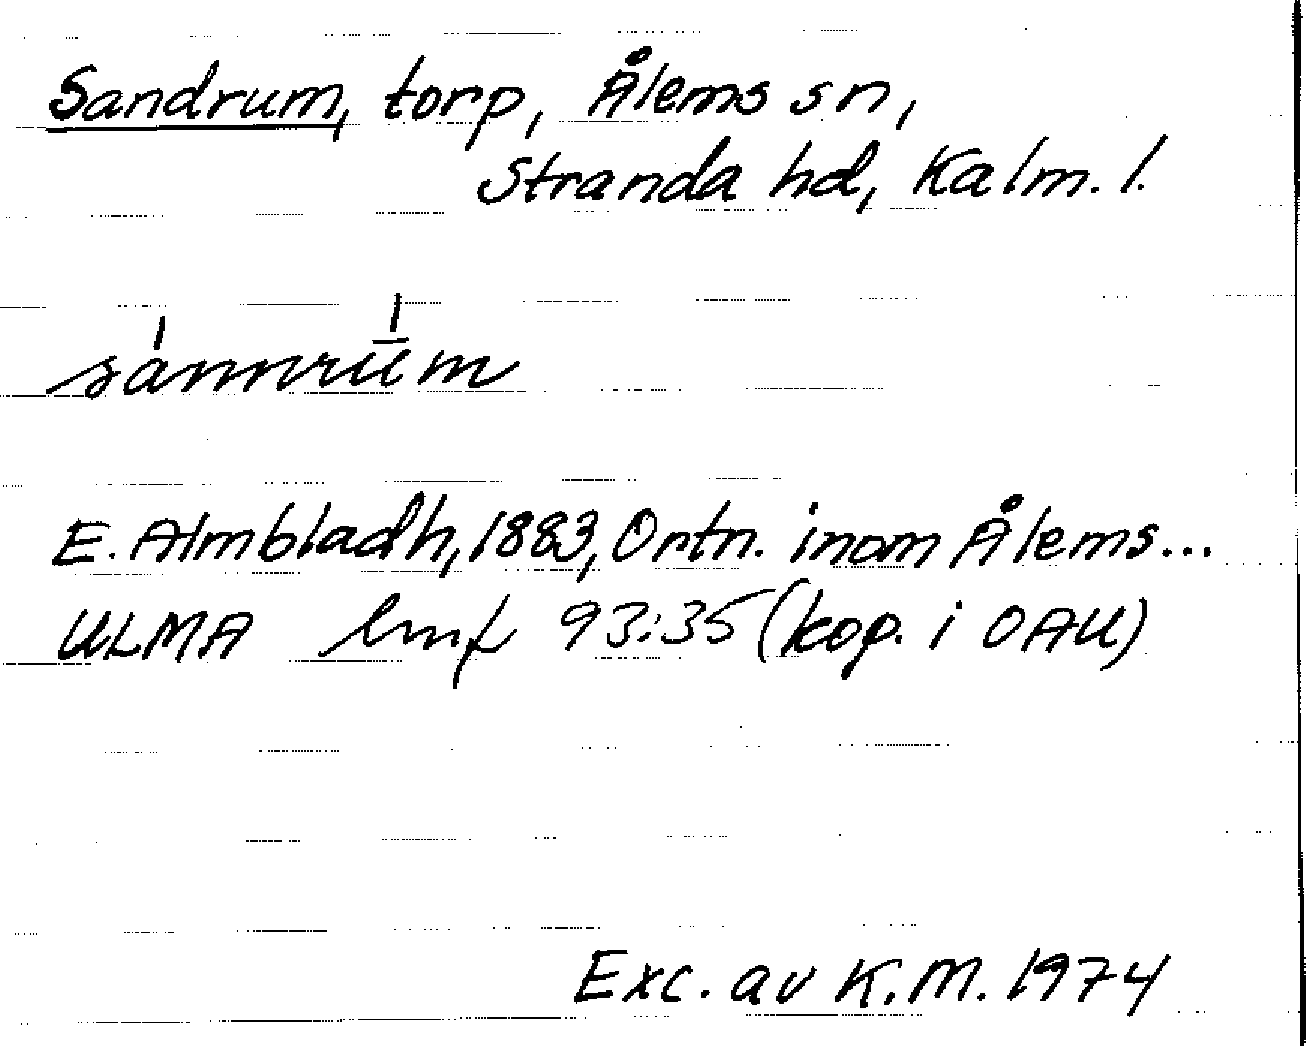 Sandrum, torp, Ålems sn,
Stranda hd, Kalm. l.
sánnrū́m
E. Almbladh, 1883, Ortn. inom Ålems...
ULMA hmf 93:35 (kop. i OAU)
Exc. av K.M. 1974